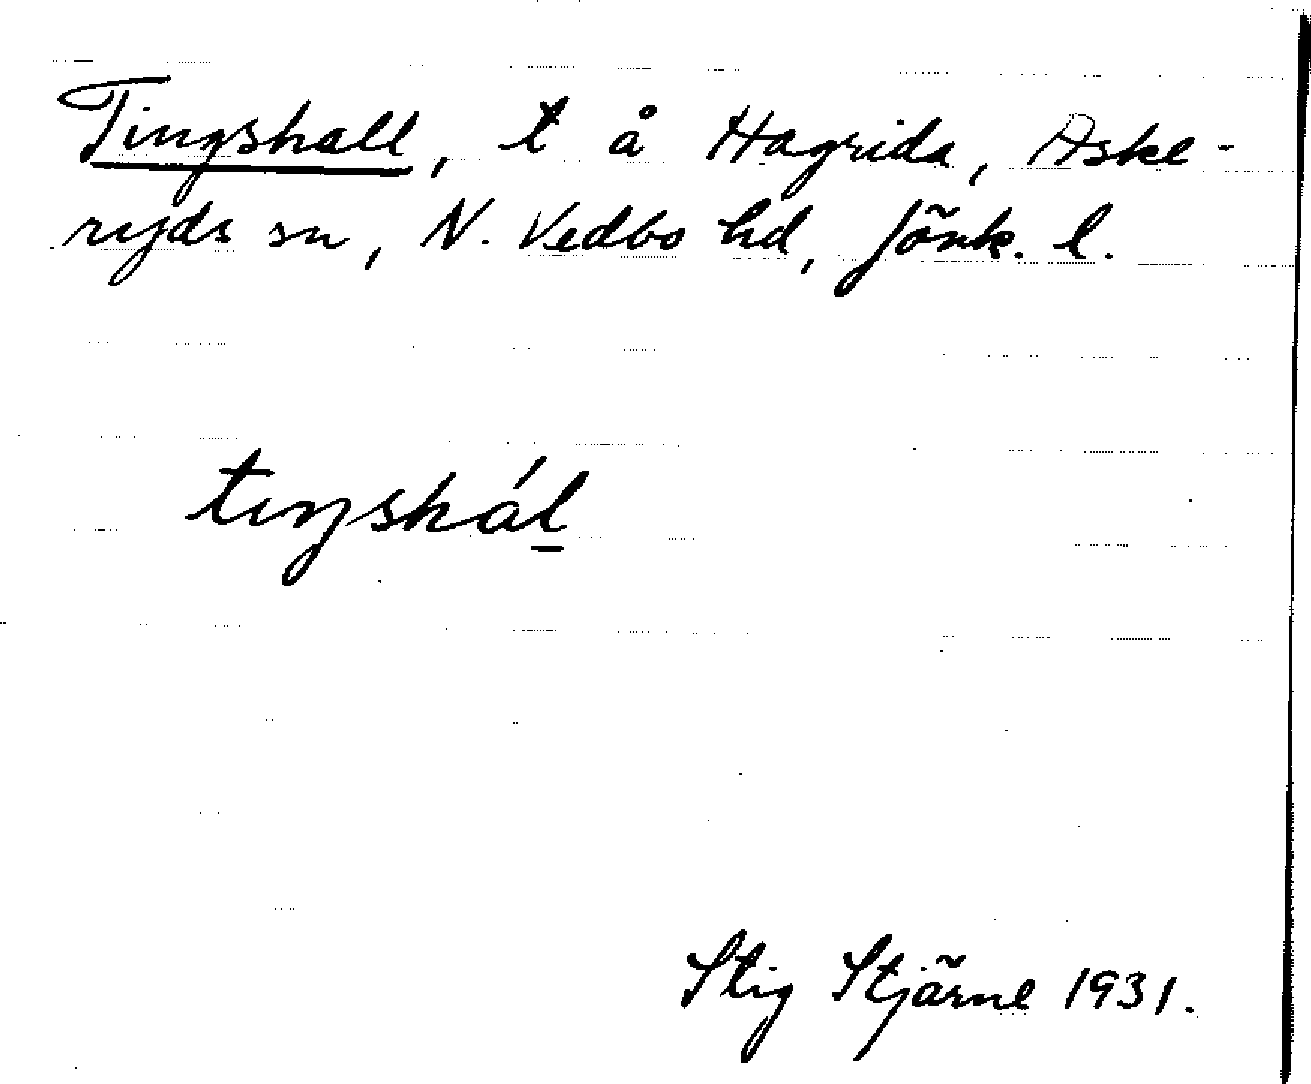 Tingshall, t å Hagrida, Aske-
ryds sn, N. Vedbo hd, Jönk. l.
tıŋshál̲
Stig Stjärne 1931.